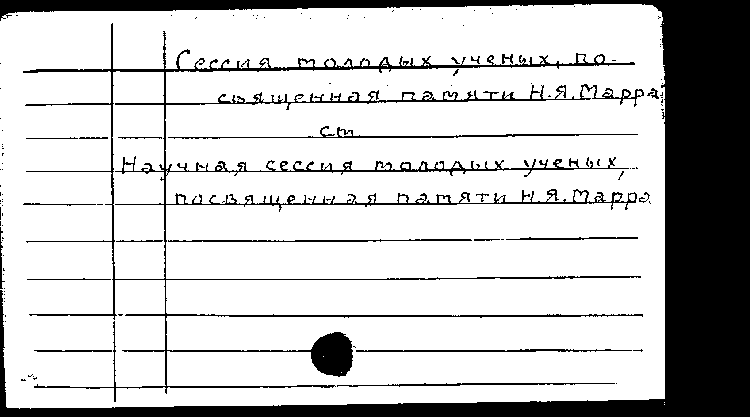 Сессия молодых ученых, по-
священная памяти Н.Я.Марра
см
Научная сессия молодых ученых,
посвященная памяти Н.Я.Марра